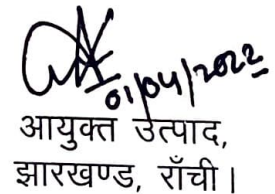 01/04/2022
आयुक्त उत्पाद,
झारखण्ड, राँची।